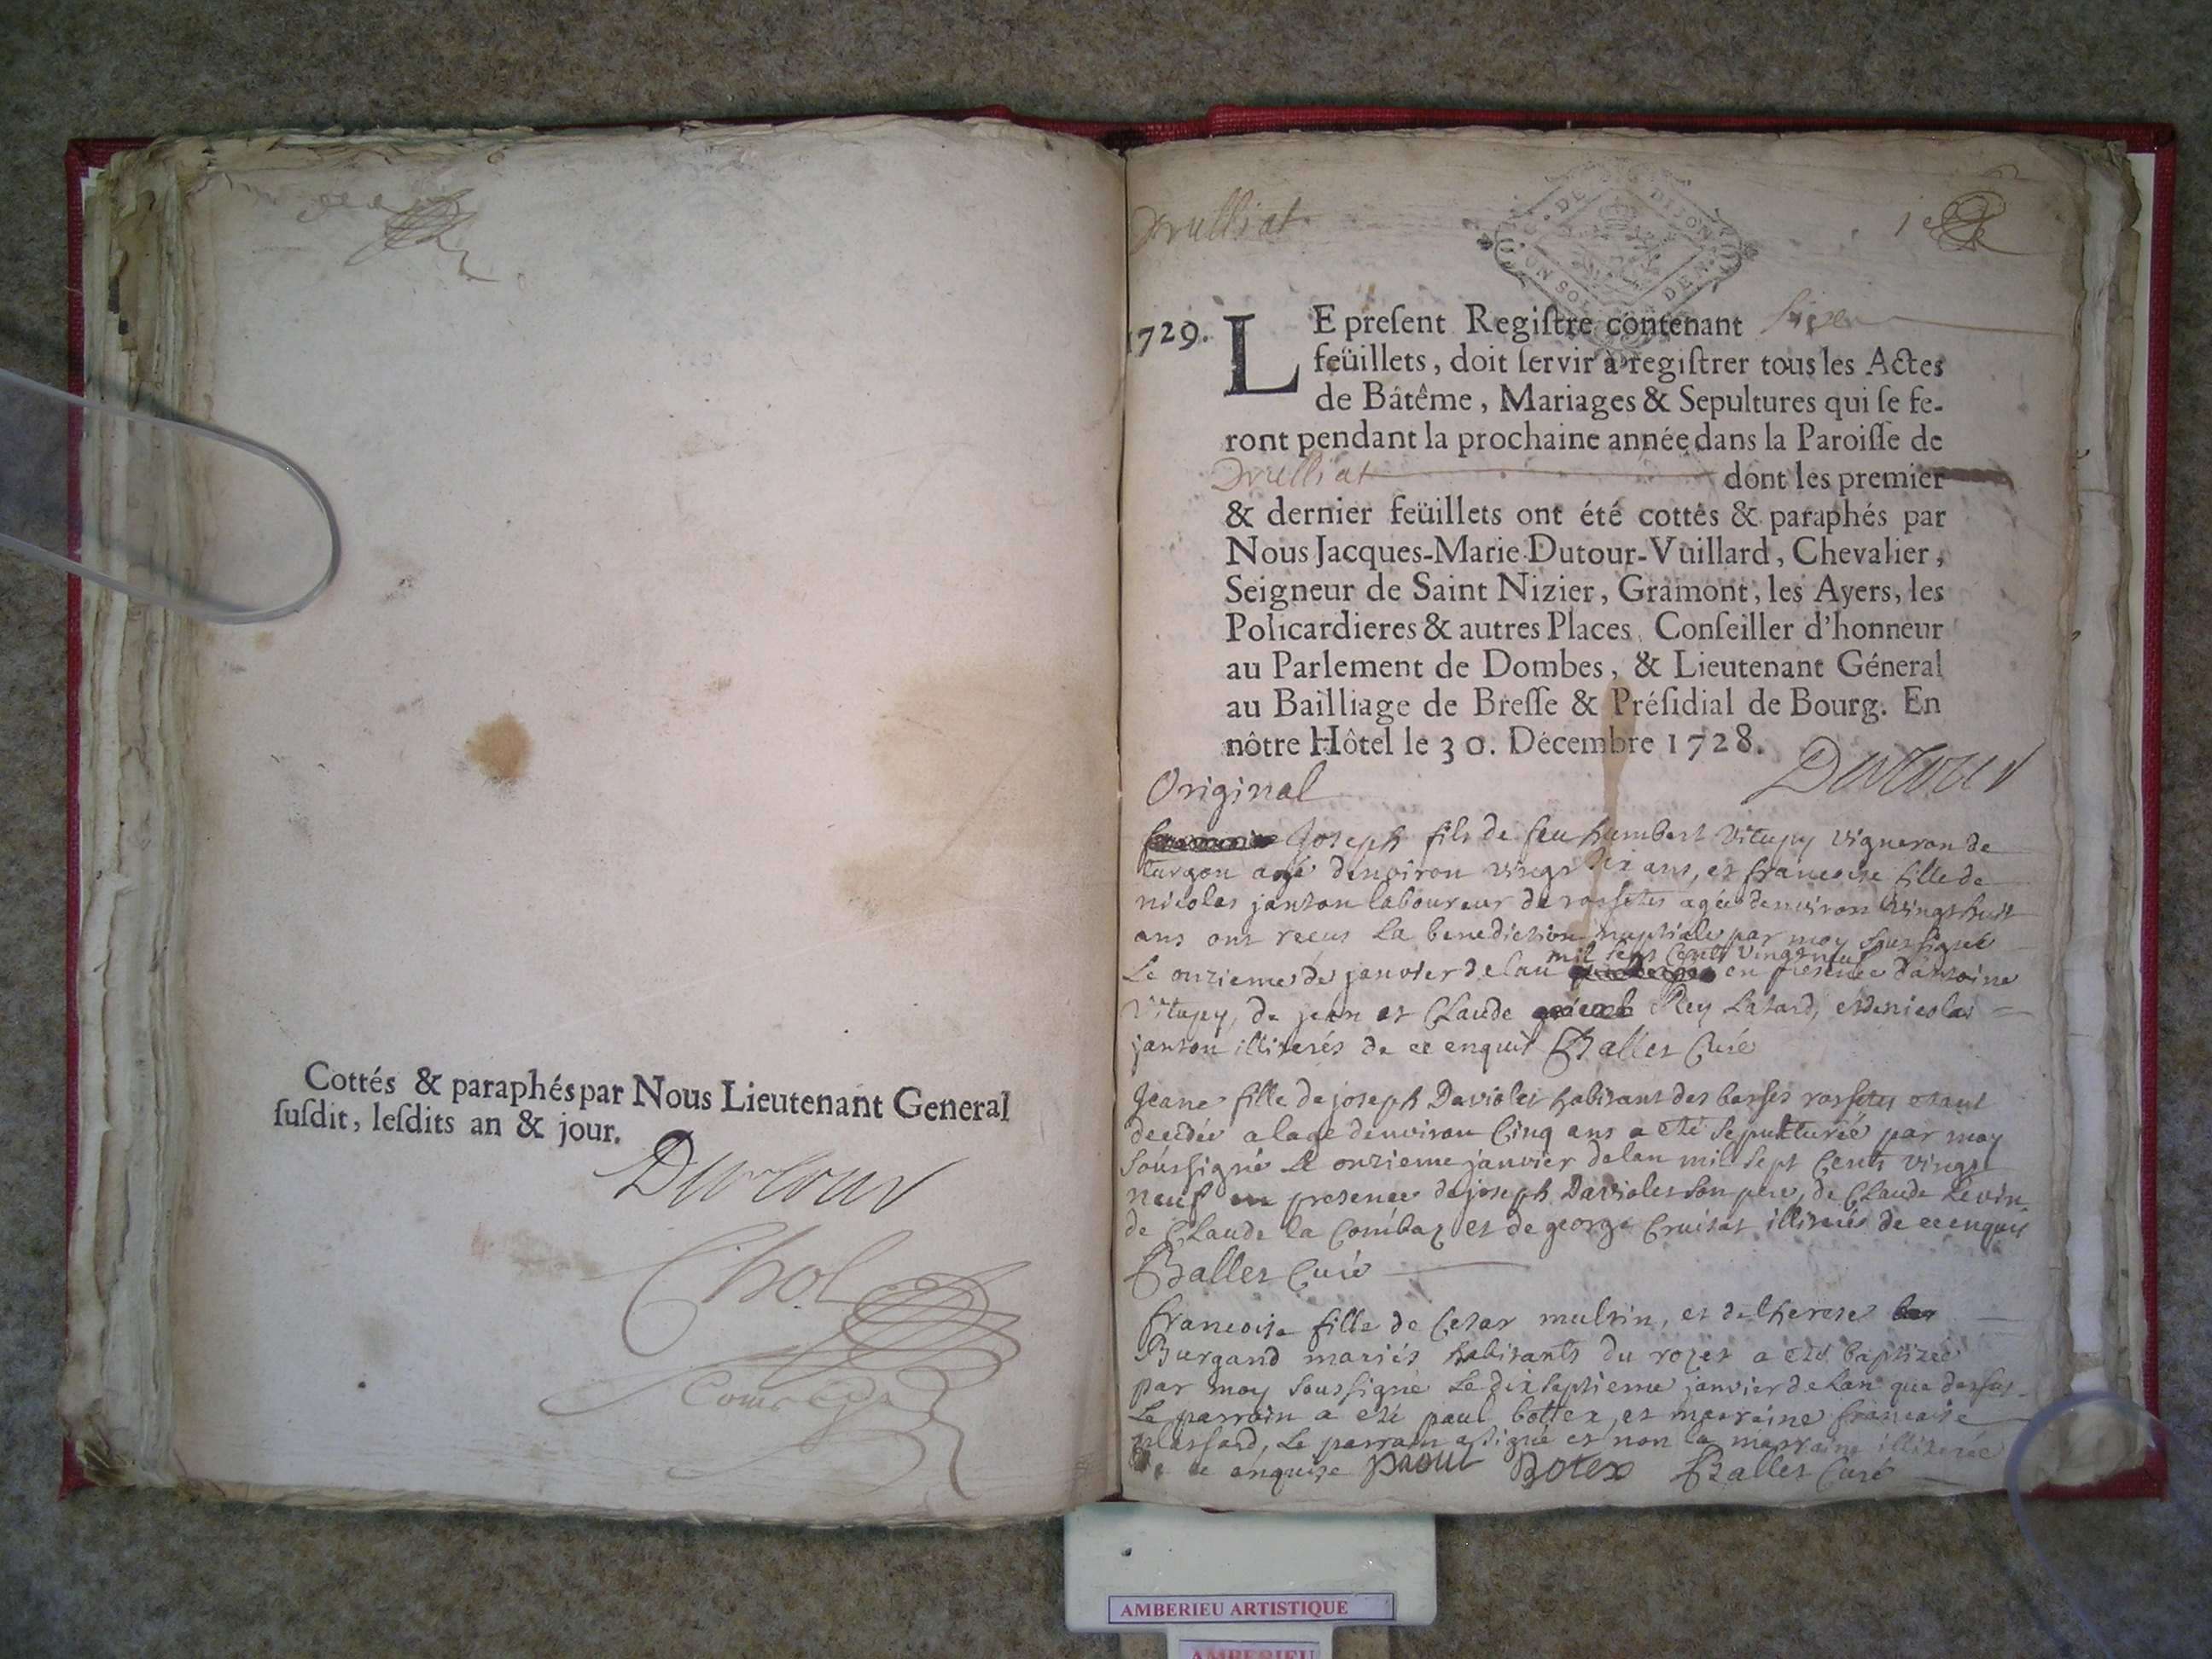 Cottés & paraphés par Nous Lieutenant General
ſuſdit, leſdits an & jour.
Dutour
Chol
Druilliat
DIJON
UN SOL
1er
1729.
LE preſent Regiſtre contenant
feüillets, doit ſervir à regiſtrer tous les Actes
de Bâtême, Mariages & Sepultures qui ſe fe-
ront pendant la prochaine année dans la Paroiſſe de
Druilliat dont les premier
& dernier feüillets ont été cottés & paraphés par
Nous Jacques-Marie Dutour-Vuillard, Chevalier,
Seigneur de Saint Nizier, Gramont, les Ayers, les
Policardieres & autres Places, Conſeiller d'honneur
au Parlement de Dombes, & Lieutenant Géneral
au Bailliage de Breſſe & Préſidial de Bourg. En
nôtre Hôtel le 30. Décembre 1728.
Dutour
Original
Joseph fils de feu humbert Vitupy Vigneron de
turgon agé denviron vingt six ans, et francoise fille de
nicolas janton laboureur de rossetes agée denviron vingt huit
ans ont recus la benediction nuptiale par moy soussigné
mil sept Cents vingt neuf
Le onzieme de janvier de lan en presence dantoine
Vitupy, de jean et Claude Rey Latard, et de nicolas
janton illiterés de ce enquis Ballet Curé
Jeane fille de joseph Daviolet habitant des basses rossetes etant
decedée a lage denviron Cinq ans a eté sepulturée par moy
soussigné Le onzieme janvier de lan mil sept Cents vingt
neuf en presence de joseph Daviolet son pere, de Claude Levin
de Claude la Combaz et de george Cruisat illiterés de ce enquis
Ballet Curé
francoise fille de Cesar multin, et de therese
Burgand mariés habitants du rozet a eté baptizée
par moy soussigné Le dix septieme janvier de Lan que dessus
Le parrain a eté paul bottex, et marraine francoise
plassard, Le parrain a signé et non la marraine illiterée
de ce enquise paoul Botex Ballet Curé
AMBERIEU ARTISTIQUE
AMBERIEU